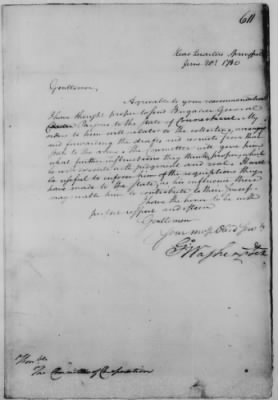 611
Head Quarters
June 20th 1780
Gentlemen,
Agreeable to your recommendation
I have thought proper to send Brigadier General
Parsons to the State of Connecticut. My
orders to him will relate to the collecting, arranging
and forwarding the drafts and recruits from that
State to the army. The Committee will give him
what further instructions they think proper, which
he will execute with judgement and zeal. It will
be useful to inform him of the requisitions they
have made to the State, as his influence there
may enable him to contribute to their success.
I have the honor to be with
perfect respect and esteem
Gentlemen
Your most Obed Serv
Go Washington
Honble
The Committee of Cooperation